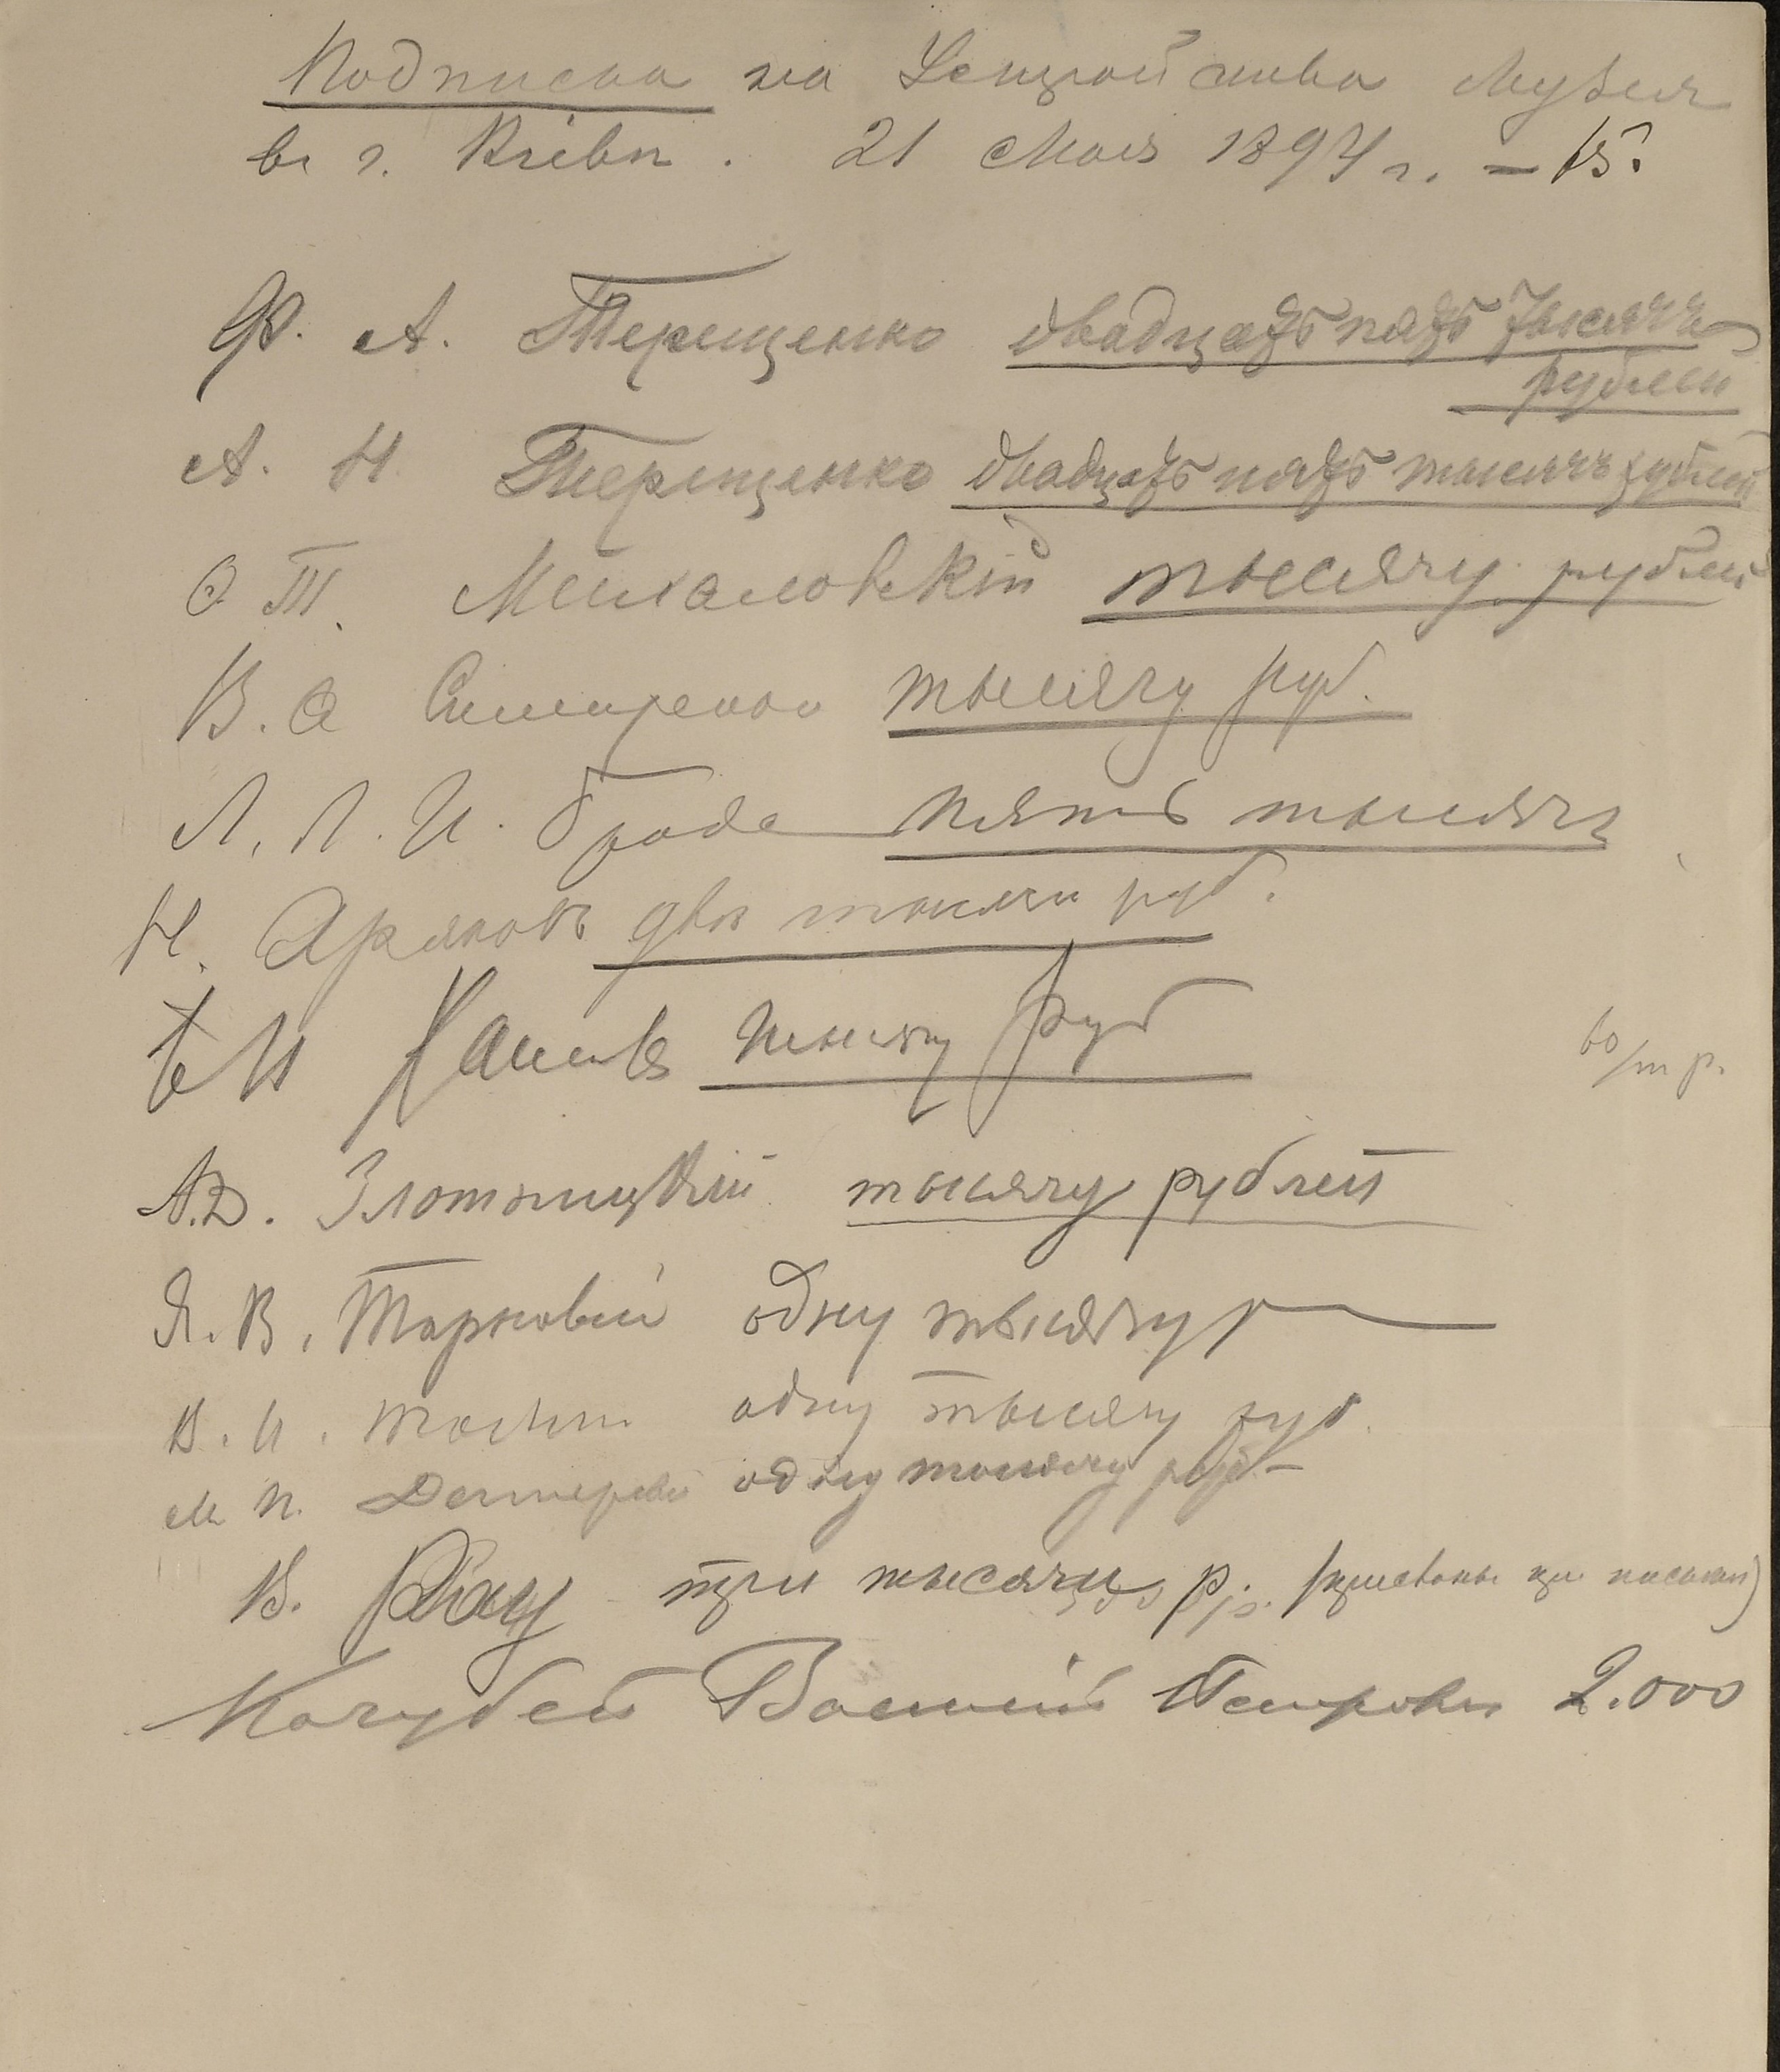 Подписка на Устройство Музея
въ г. Кіевѣ. 21 Мая 1897 г. – 15.
Ф. А. Терещенко двадцать пять тысячъ
рублей
А. Н. Терещенко двадцать пять тысячъ рублей
О Т. Михаловскій тысячу рублей
В. Ѳ Симиренко тысячу руб.
Л. Л. И. Бродс пять тысячъ
Н. двѣ тысячи руб.
Б И Ханенко тысячу руб
60/т р.
А.Д. Злотницкій тысячу рублей
Я. В. Тарновскій одну тысячу р
В. И. Толли одну тысячу руб.
М П. Дегтерев одну тысячу руб
В. три тысячи р.
Кочубей Василій Петровичъ 2.000